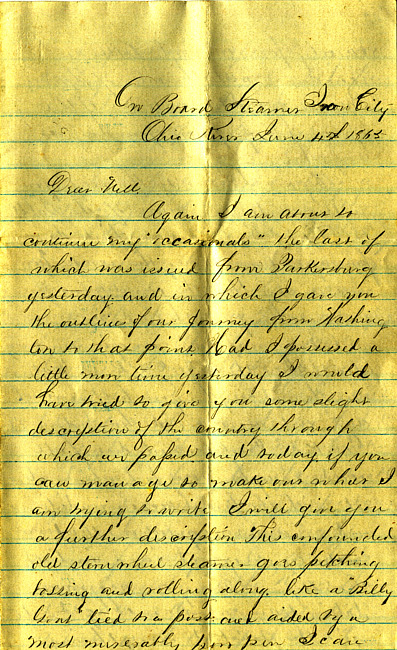 On Board Steamer Iron City
Ohio River June 4th 1865
Dear Nell
Again I am about to
continue my "occasionals" the last of
which was issued from Parkersburg
yesterday and in which I gave you
the outlines of our Journey from Washing
ton to that point. Had I possessed a
little more time yesterday I would
have tried to give you some slight
description of the country through
which we passed and today if you
can manage to make out what I
am trying to write I will give you
a further description This confounded
old stern wheel steamer goes pitching
tossing and rolling along like a "Billy
Goat" tied to a post and aided by a
most miserably poor pen I can